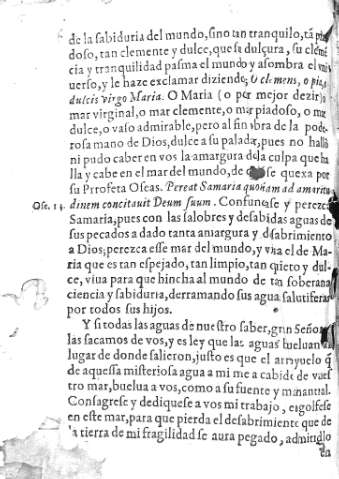 de la sabiduria del mundo, sino tan tranquilo, tã
doso, tan clemente y dulce, que su dulçura, su clemẽ
cia y tranquilidad pasma el mundo y asombra el vni
uerso, y le haze exclamar diziendo; O clemens, o pia,
dulcis virgo Maria. O Maria (o per mejor dezir)
mar virginal, o mar clemente, o mar piadoso, o mar
dulce, o vaso admirable, pero al fin obra de la pode-
rosa mano de Dios, dulce a su paladar, pues no halló
ni pudo caber en vos la amargura de la culpa que ha
lla y cabe en el mar del mundo, de se quexa por
su Prrofeta Oseas. Pereat Samaria quoniam ad amaritu
Ose. 14. dinem concitauit Deum suum. Confundase y perezca
Samaria, pues con las salobres y desabidas aguas de
sus pecados a dado tanta amargura y desabrimiento
a Dios; perezca esse mar del mundo, y viua el de Ma-
ria que es tan espejado, tan limpio, tan quieto y dul-
ce, viua para que hincha al mundo de tan soberana
ciencia y sabiduria, derramando sus aguas salutiferas
por todos sus hijos.
Y si todas las aguas de nuestro saber, gran Señora
las sacamos de vos, y es ley que las aguas bueluan al
lugar de donde salieron, justo es que el arroyuelo q̃
de aquessa misteriosa agua a mi me a cabido de vues
tro mar, buelua a vos, como a su fuente y manantial.
Consagrese y dediquese a vos mi trabajo, engolfese
en este mar, para que pierda el desabrimiento que de
la tierra de mi fragilidad se aura pegado, admitidlo
en